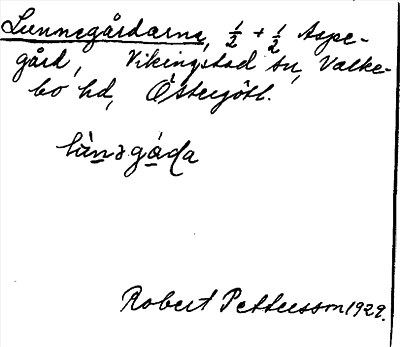 Lunnegårdarna, ½ + ½ Aspe-
gård, Vikingstad sn, Valke-
bo hd, Östergötl.
lùnəgáda
Robert Pettersson 1929.